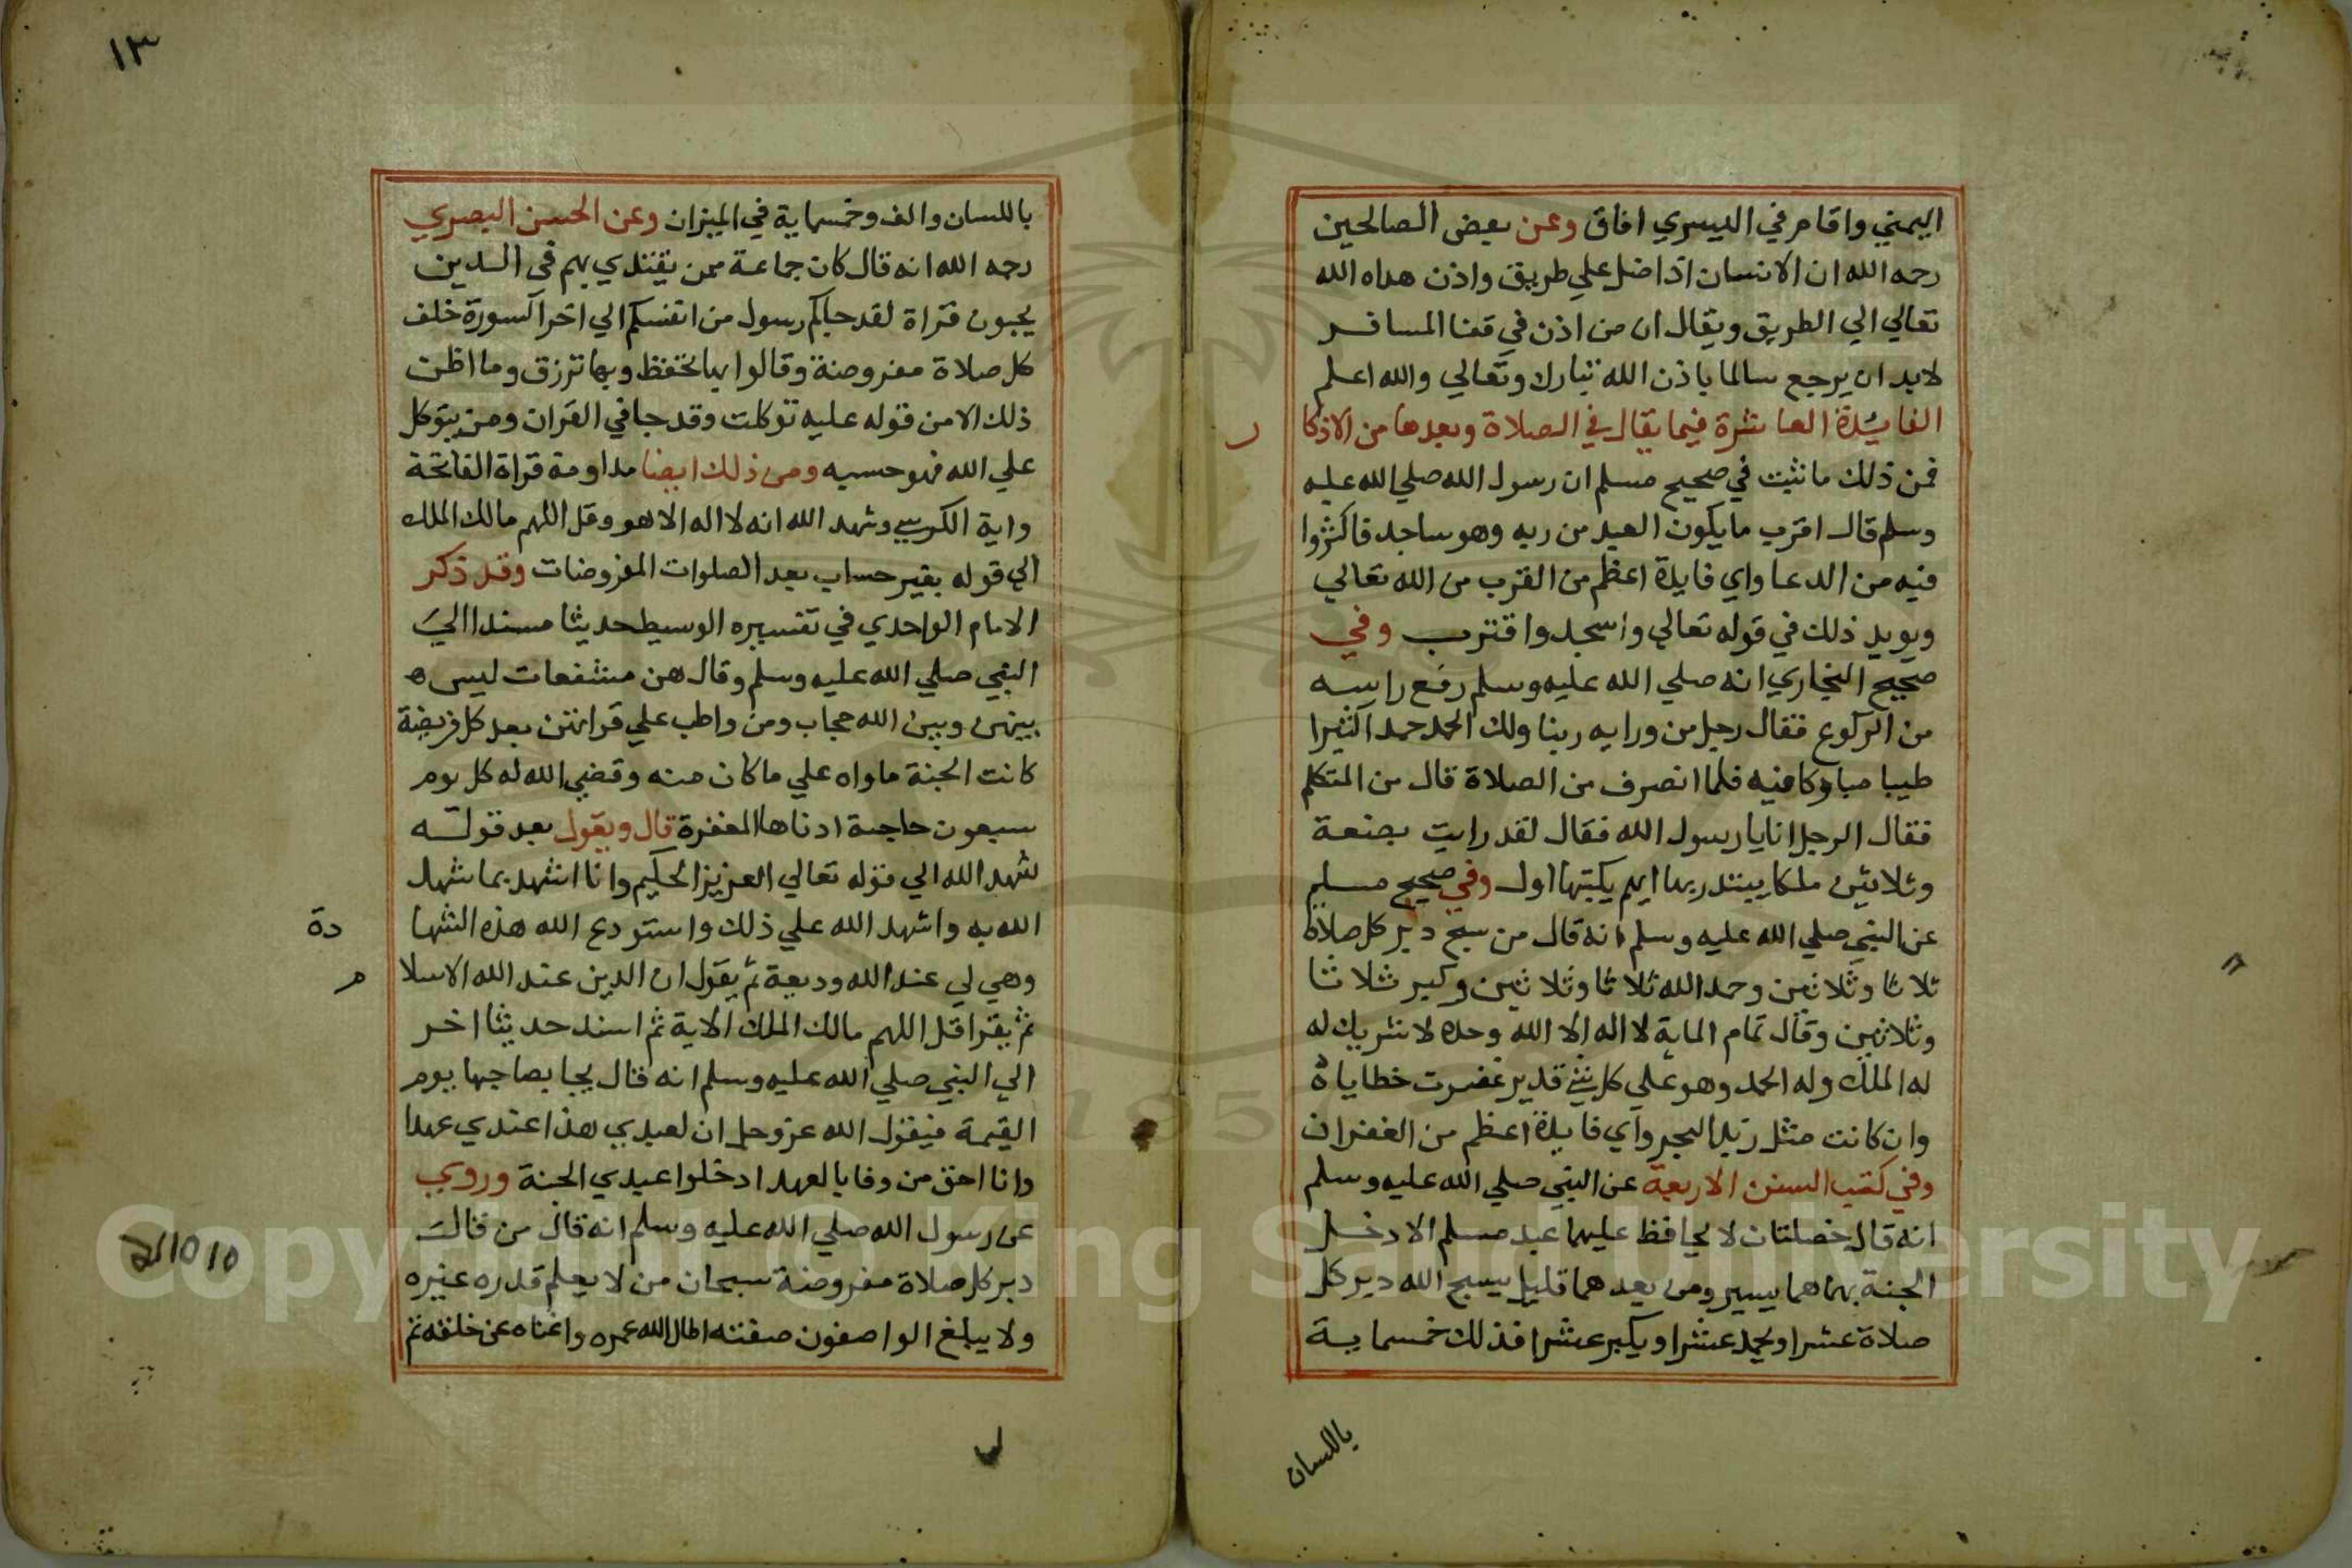 اليمني واقام في اليسري افاق وعن بعض الصالحين
رحمه الله ان الانسان اذا ضل علي طريق واذن هداه الله
تعالي الي الطريق ويقال ان من اذن في قفا المسافر
لابد ان يرجع سالما باذن الله تبارك وتعالي والله اعلم
الفايدة العاشرة فيما يقال في الصلاة وبعدها من الاذكا
ر
فمن ذلك ما ثبت في صحيح مسلم ان رسول الله صلي الله عليه
وسلم قال اقرب ما يكون العبد من ربه وهو ساجد فاكثروا
فيه من الدعا واي فايدة اعظم من القرب من الله تعالي
ويويد ذلك في قوله تعالي واسجد واقترب وفي
صحيح البخاري انه صلي الله عليه وسلم رفع راسه
من الركوع فقال رجل من ورايه ربنا ولك الحمد حمدا كثيرا
طيبا مباركا فيه فلما انصرف من الصلاة قال من المتكلم
فقال الرجل انا يا رسول الله فقال لقد رايت بضعة
وثلاثين ملكا يبتدرونها ايهم يكتبها اول وفي صحيح مسلم
عن النبي صلي الله عليه وسلم انه قال من سبح دبر كل صلاة
ثلاثا وثلاثين وحمد الله ثلاثا وثلاثين وكبر ثلاثا
وثلاثين وقال تمام الماية لا اله الا الله وحده لا شريك له
له الملك وله الحمد وهو علي كل شي قدير غفرت خطاياه
وان كانت مثل زبد البحر واي فايدة اعظم من الغفران
وفي كتب السنن الاربعة عن النبي صلي الله عليه وسلم
انه قال خصلتان لا يحافظ عليهما عبد مسلم الا دخل
الجنة بهما هما يسير ومن يعد هما قليل يسبح الله دبر كل
صلاة عشرا ويحمد عشرا ويكبر عشرا فذلك خمسماية
باللسان
١٣
باللسان والف وخمسماية في الميزان وعن الحسن البصري
رحمه الله انه قال كان جماعة ممن يقتدي بهم في الدين
يحبون قراة لقد جاكم رسول من انفسكم الي اخر السورة خلف
كل صلاة مفروضة وقالوا بها تحفظ وبها ترزق وما اظن
ذلك الا من قوله عليه توكلت وقد جا في القران ومن يتوكل
علي الله فهو حسبه ومن ذلك ايضا مداومة قراة الفاتحة
واية الكرسي وشهد الله انه لا اله الا هو وقل اللهم مالك الملك
الي قوله بغير حساب بعد الصلوات المفروضات وقد ذكر
الامام الواحدي في تفسيره الوسيط حديثا مسندا الي
النبي صلي الله عليه وسلم وقال هن مشفعات ليس ه
بينهن وبين الله حجاب ومن واظب علي قراتهن بعد كل فريضة
كانت الجنة ماواه علي ما كان منه وقضي الله له كل يوم
سبعون حاجة ادناها المغفرة قال ويقول بعد قوله
شهد الله الي قوله تعالي العزيز الحكيم وانا اشهد بما شهد
الله به واشهد الله علي ذلك واستودع الله هذه الشها
دة
وهي لي عند الله وديعة ثم يقول ان الدين عند الله الاسلا
م
ثم يقرا قل اللهم مالك الملك الاية ثم اسند حديثا اخر
الي النبي صلي الله عليه وسلم انه قال يجا بصاحبها يوم
القيمة فيقول الله عز وجل ان لعبدي هذا عندي عهدا
وانا احق من وفا بالعهد ادخلوا عبدي الجنة وروي
عن رسول الله صلي الله عليه وسلم انه قال من قال
دبر كل صلاة مفروضة سبحان من لا يعلم قدره غيره
ولا يبلغ الواصفون صفته اطال الله عمره واغناه عن خلقه ثم
Copyright © King Saud University